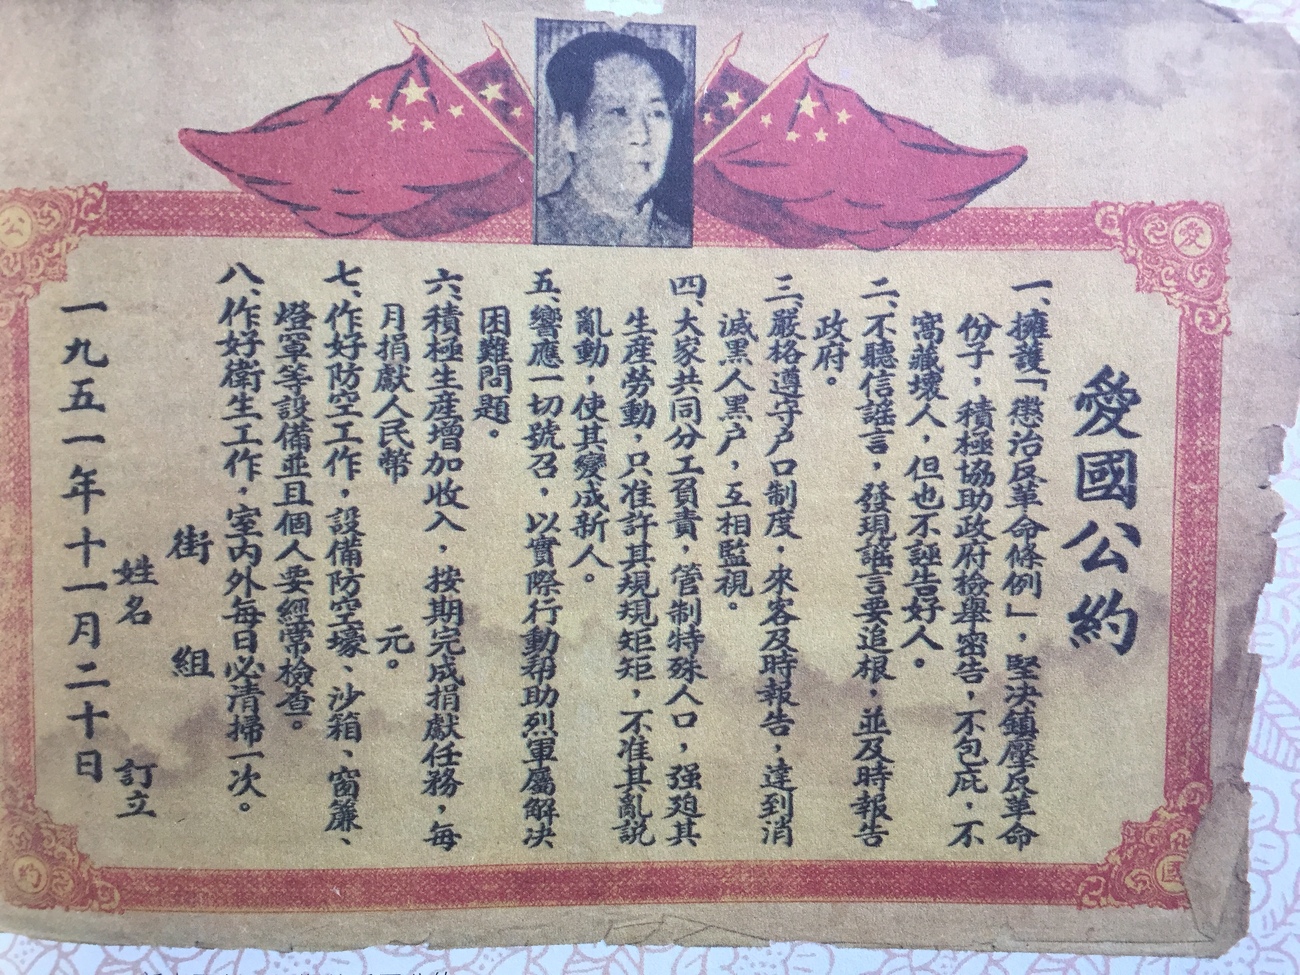 愛國公約
一、擁護「懲治反革命條例」，堅決鎮壓反革命
份子，積極協助政府檢舉密告，不包庇，不
窩藏壞人，但也不誣告好人。
二、不聽信謠言，發現謠言要追根，並及時報告
政府。
三、嚴格遵守户口制度，來客及時報告，達到消
滅黑人黑户，互相監視。
四、大家共同分工負責，管制特殊人口，强廹其
生産勞動，只准許其規規矩矩，不准其亂説
亂動，使其變成新人。
五、響應一切號召，以實際行動帮助烈軍屬解决
困難問題。
六、積極生産增加收入，按期完成捐獻任務，每
月捐獻人民幣　　元。
七、作好防空工作，設備防空壕、沙箱、窗簾、
燈罩等設備並且個人要經常檢查。
八、作好衛生工作，室内外每日必清掃一次。
街　組
姓名　　訂立
一九五一年十一月二十日
愛
國
公
約